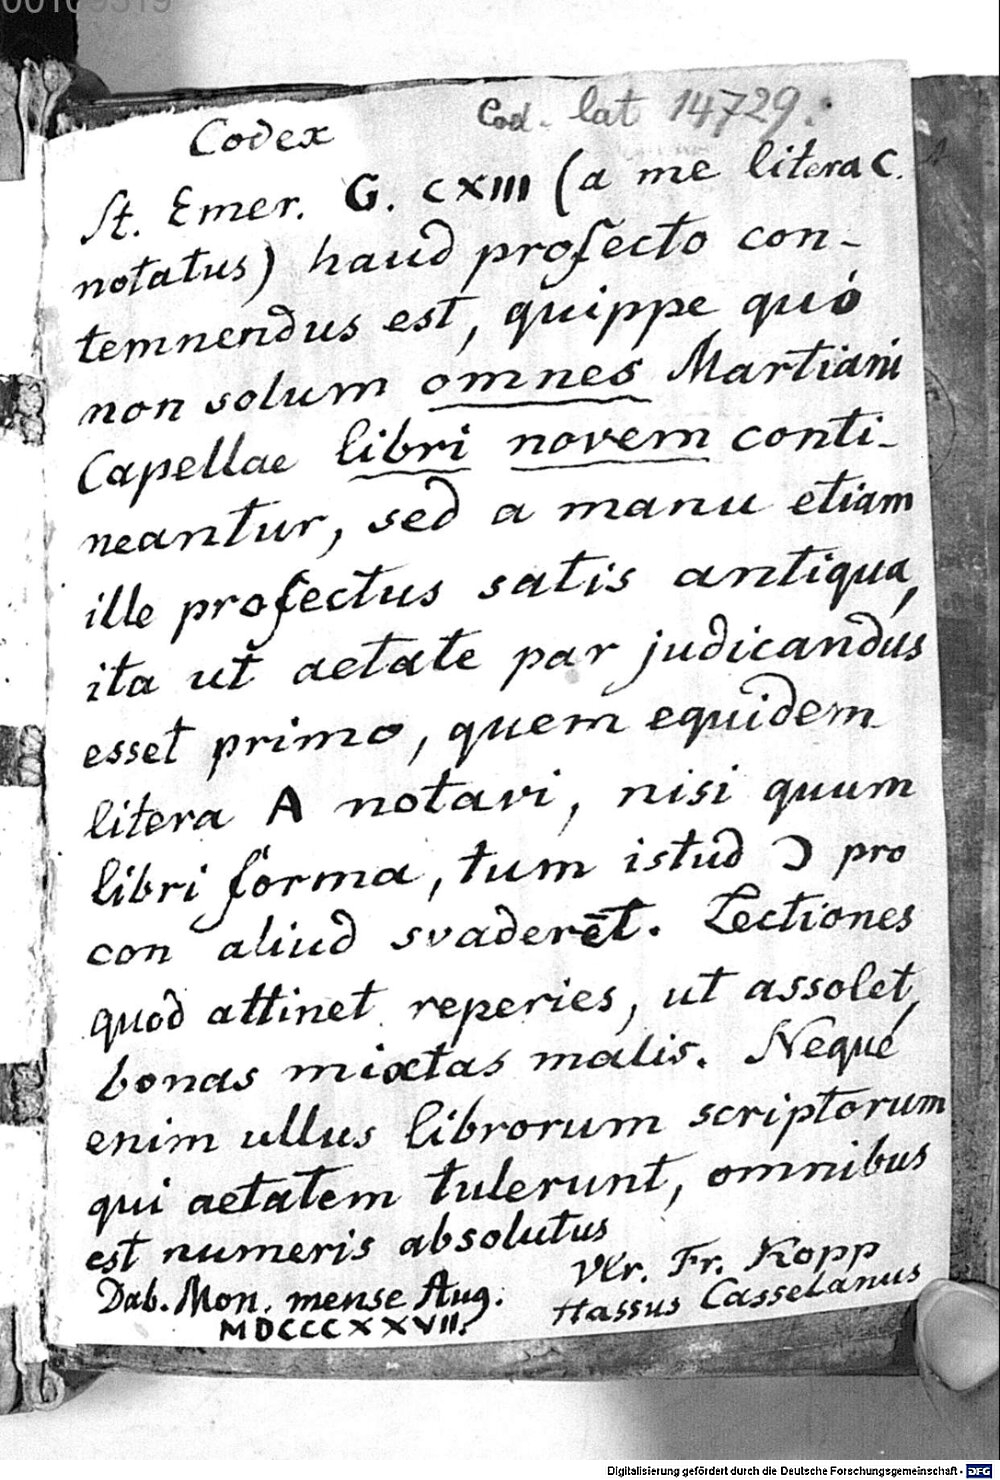 00109319
Cod. lat 14729.
Codex
St. Emer. G. CXIII (a me litera C.
notatus) haud profecto con-
temnendus est, quippe quó
non solum omnes Martiani
Capellae libri novem conti-
neantur, sed a manu etiam
ille profectus satis antiqua,
ita ut aetate par judicandus
esset primo, quem equidem
litera A notavi, nisi quum
libri forma, tum istud Ɔ pro
con aliud svaderēt. Lectiones
quod attinet reperies, ut assolet,
bonas mixtas malis. Neque
enim ullus librorum scriptorum
qui aetatem tulerunt, omnibus
est numeris absolutus
Dab. Mon. mense Aug.
MDCCCXXVII.
Vlr. Fr. Kopp
Hassus Casselanus
Digitalisierung gefördert durch die Deutsche Forschungsgemeinschaft - DFG